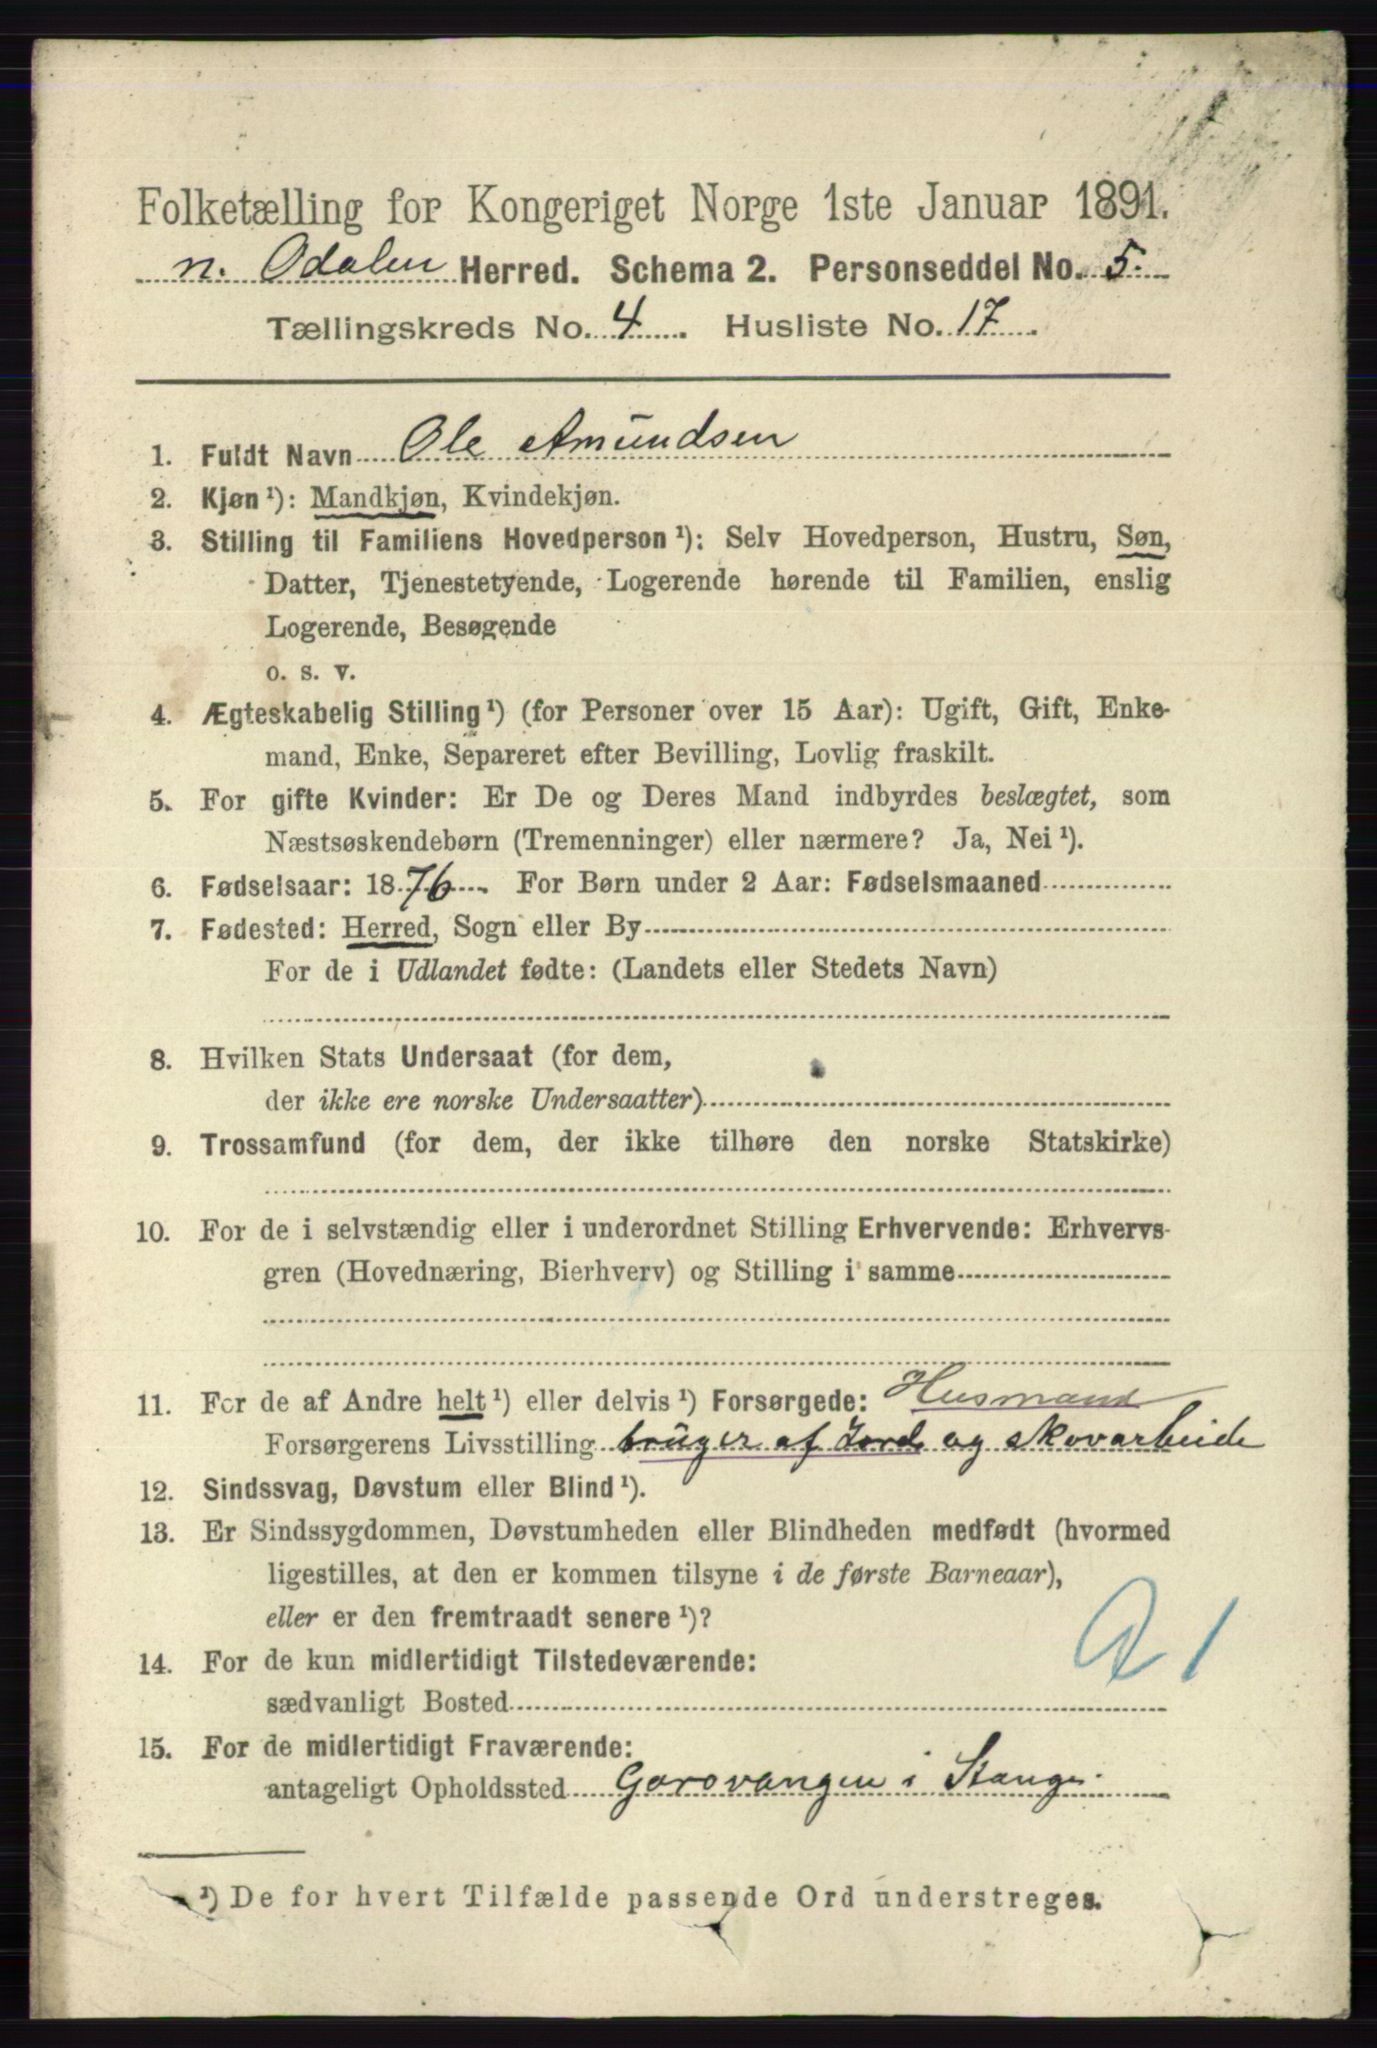 Folketælling for Kongeriget Norge 1ste Januar 1891.
n. Odalen Herred. Schema 2. Personseddel No. 5.
Tællingskreds No. 4. Husliste No. 17.
1. Fuldt Navn Ole Amundsen
2. Kjøn ¹): Mandkjøn, Kvindekjøn.
3. Stilling til Familiens Hovedperson ¹): Selv Hovedperson, Hustru, Søn,
Datter, Tjenestetyende, Logerende hørende til Familien, enslig
Logerende, Besøgende
o. s. v.
4. Ægteskabelig Stilling ¹) (for Personer over 15 Aar): Ugift, Gift, Enke-
mand, Enke, Separeret efter Bevilling, Lovlig fraskilt.
5. For gifte Kvinder: Er De og Deres Mand indbyrdes beslægtet, som
Næstsøskendebørn (Tremenninger) eller nærmere? Ja, Nei ¹).
6. Fødselsaar: 1876. For Børn under 2 Aar: Fødselsmaaned
7. Fødested: Herred, Sogn eller By
For de i Udlandet fødte: (Landets eller Stedets Navn)
8. Hvilken Stats Undersaat (for dem,
der ikke ere norske Undersaatter)
9. Trossamfund (for dem, der ikke tilhøre den norske Statskirke)
10. For de i selvstændig eller i underordnet Stilling Erhvervende: Erhvervs-
gren (Hovednæring, Bierhverv) og Stilling i samme
11. For de af Andre helt ¹) eller delvis ¹) Forsørgede: Husmand
Forsørgerens Livsstilling bruger af Jord og skovarbeide
12. Sindssvag, Døvstum eller Blind ¹).
13. Er Sindssygdommen, Døvstumheden eller Blindheden medfødt (hvormed
ligestilles, at den er kommen tilsyne i de første Barneaar),
eller er den fremtraadt senere ¹)?
14. For de kun midlertidigt Tilstedeværende:
sædvanligt Bosted
15. For de midlertidigt Fraværende:
antageligt Opholdssted Gorovangen i Stange.
¹) De for hvert Tilfælde passende Ord understreges.